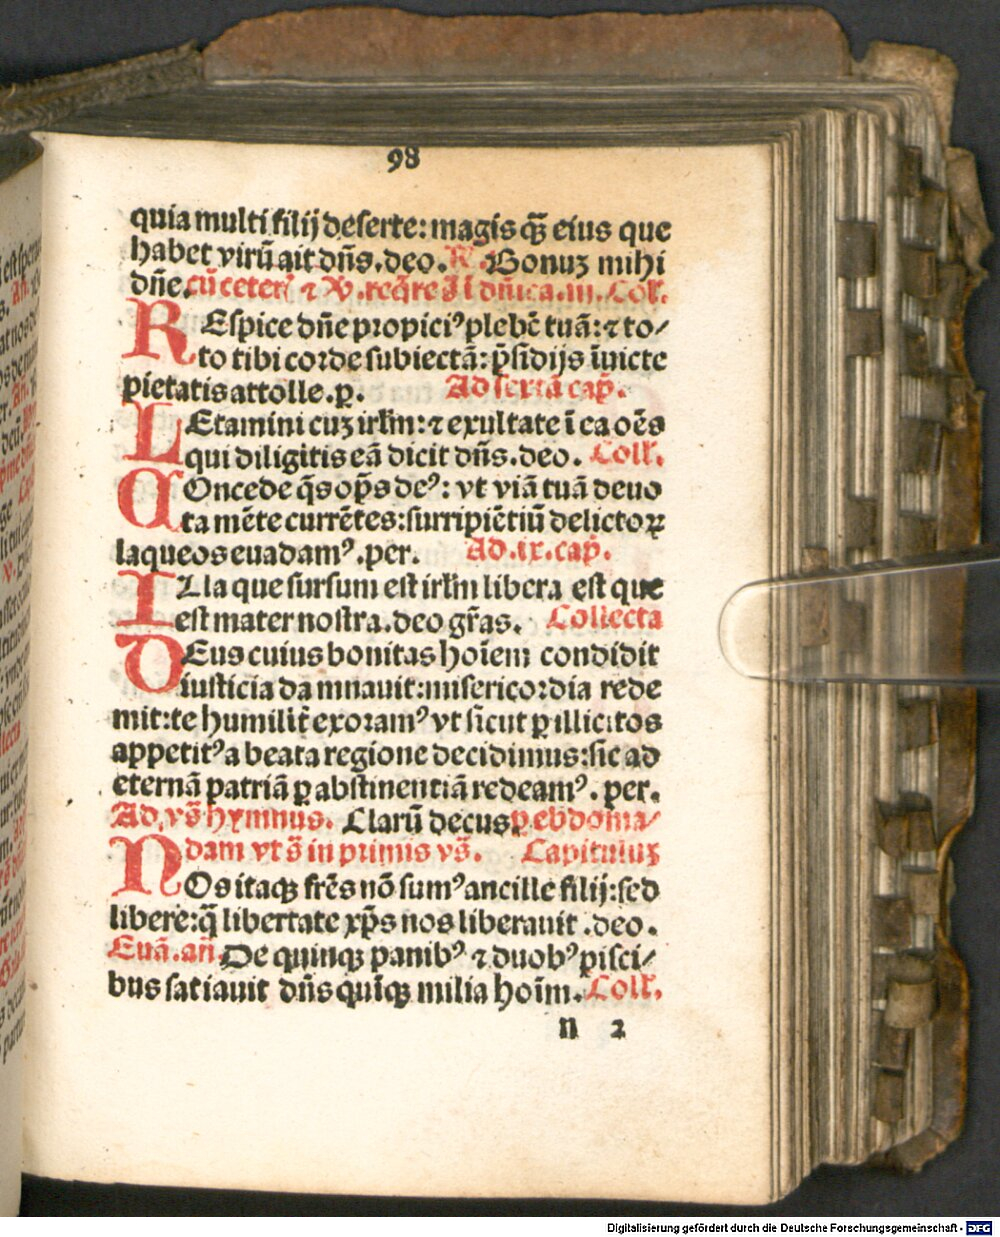 98
quia multi filij deserte: magis q̃ȝ eius que
habet virũ ait dñs. deo. R̃. Bonuȝ mihi
dñe. cũ ceter̃ ⁊ V̉. reqr̃e ĩ dñica. iii. Coll̃.
REspice dñe propici⁹ plebẽ tuã: ⁊ to/
to tibi corde subiectã: p̃sidijs ĩuicte
pietatis attolle. p. Ad sextã cap̃.
LEtamini cuȝ irl̃m: ⁊ exultate ĩ ea oẽs
qui diligitis eã dicit dñs. deo. Coll̃.
COncede q̃s op̃s de⁹: vt viã tuã deuo
ta mẽte currẽtes: surripiẽtiũ delictoꝝ
laqueos euadam⁹. per. Ad. ix. cap̃.
ILla que sursum est irl̃m libera est que
est mater nostra. deo gr̃as. Collecta
DEus cuius bonitas hoĩem condidit
iusticia damnauit: misericordia rede
mit: te humilit̃ exoram⁹ vt sicut ꝑ illicitos
appetit⁹ a beata regione decidimus: sic ad
eternã patriã ꝑ abstinentiã redeam⁹. per.
Ad. vs̃ hymnus. Clarũ decus ꝑ ebdoma/
dam vt s̃ in primis vs̃. Capituluȝ
NOs itaqȝ frẽs nõ sum⁹ ancille filij: sed
libere: q̃ libertate xp̃s nos liberauit. deo.
Euã. añ. De quinqȝ panib⁹ ⁊ duob⁹ pisci/
bus satiauit dñs quĩqȝ milia hoĩm. Coll̃.
n 2
Digitalisierung gefördert durch die Deutsche Forschungsgemeinschaft - DFG